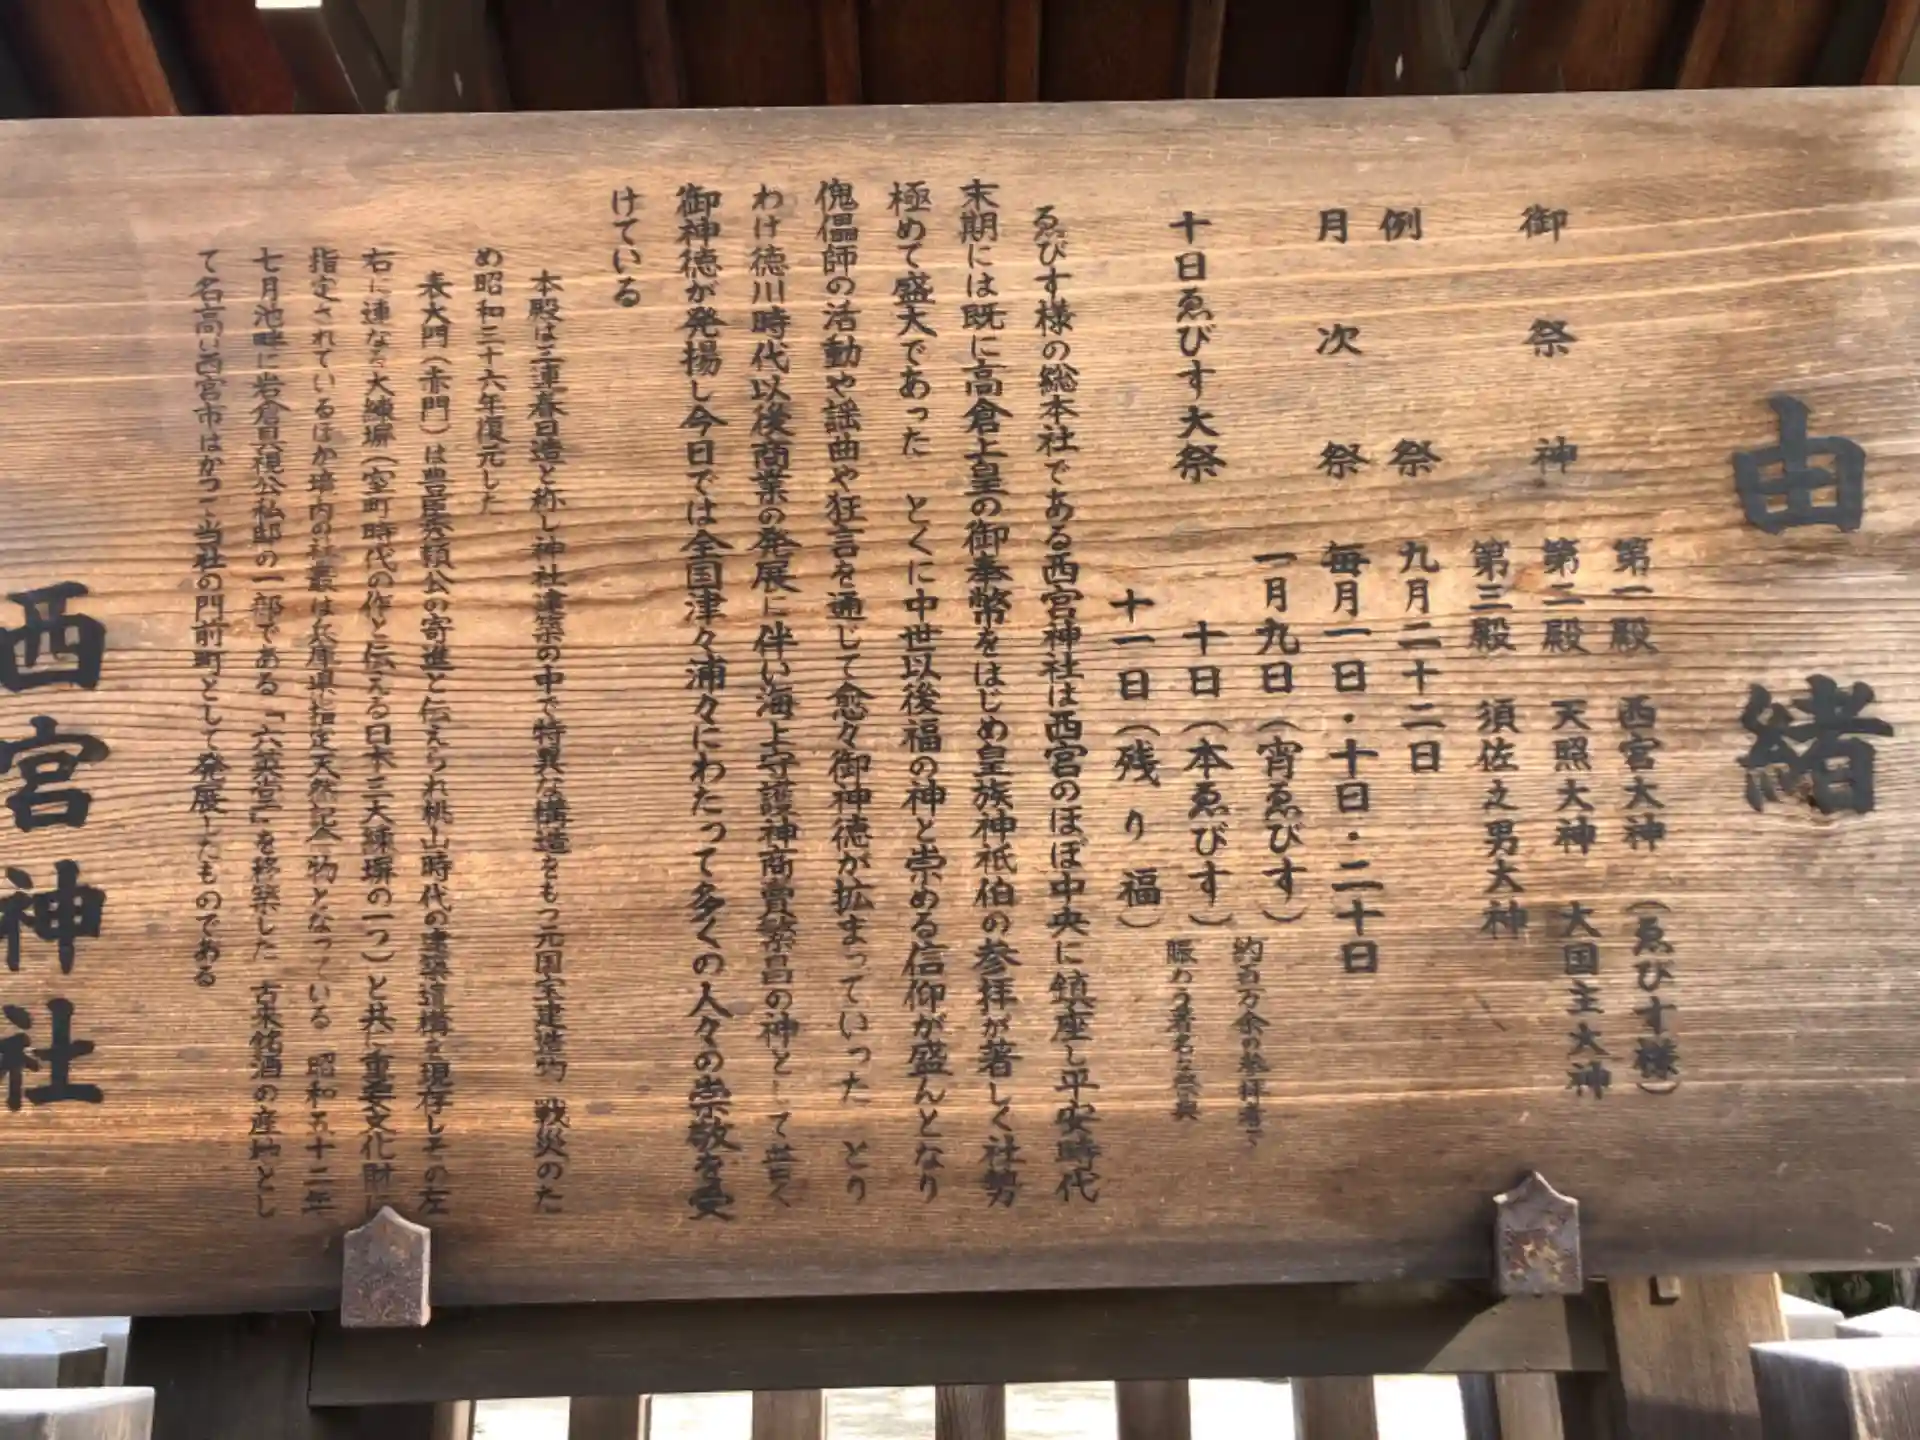 由緒
御祭神 第一殿 西宮大神（ゑびす様）
第二殿 天照大神 大国主大神
第三殿 須佐之男大神
例祭 九月二十二日
月次祭 毎月一日・十日・二十日
十日ゑびす大祭 一月九日（宵ゑびす）
十日（本ゑびす）
十一日（残り福）
約百万余の参拝者で
賑わう著名な祭典
ゑびす様の総本社である西宮神社は西宮のほぼ中央に鎮座し平安時代
末期には既に高倉上皇の御奉幣をはじめ皇族神祇伯の参拝が著しく社勢
極めて盛大であった とくに中世以後福の神と崇める信仰が盛んとなり
傀儡師の活動や謡曲や狂言を通じて愈々御神徳が拡まっていった とり
わけ徳川時代以後商業の発展に伴い海上守護神商売繁昌の神として普く
御神徳が発揚し今日では全国津々浦々にわたって多くの人々の崇敬を受
けている
本殿は三連春日造と称し神社建築の中で特異な構造をもつ元国宝建造物 戦災のた
め昭和三十六年復元した
表大門（赤門）は豊臣秀頼公の寄進と伝えられ桃山時代の建築遺構を現存しその左
右に連なる大練塀（室町時代の作と伝える日本三大練塀の一つ）と共に重要文化財に
指定されているほか境内の社叢は兵庫県指定天然記念物となっている 昭和五十二年
七月池畔に岩倉具視公私邸の一部である「六英堂」を移築した 古来銘酒の産地とし
て名高い西宮市はかつて当社の門前町として発展したものである
西宮神社